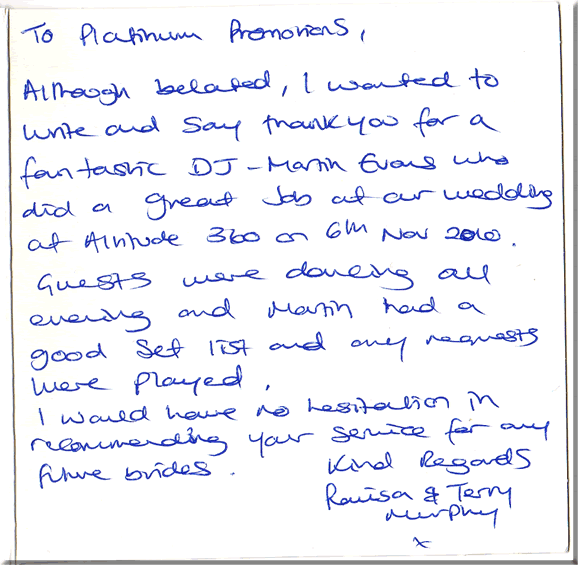 To Platinum Promotions,
Although belated, I wanted to
write and say thankyou for a
fantastic DJ - Martin Evans who
did a great job at our wedding
at Altitude 360 on 6th Nov 2010.
Guests were dancing all
evening and Martin had a
good set list and any requests
were played.
I would have no hesitation in
recommending your service for any
future brides.
Kind Regards
& Terry
Murphy
x